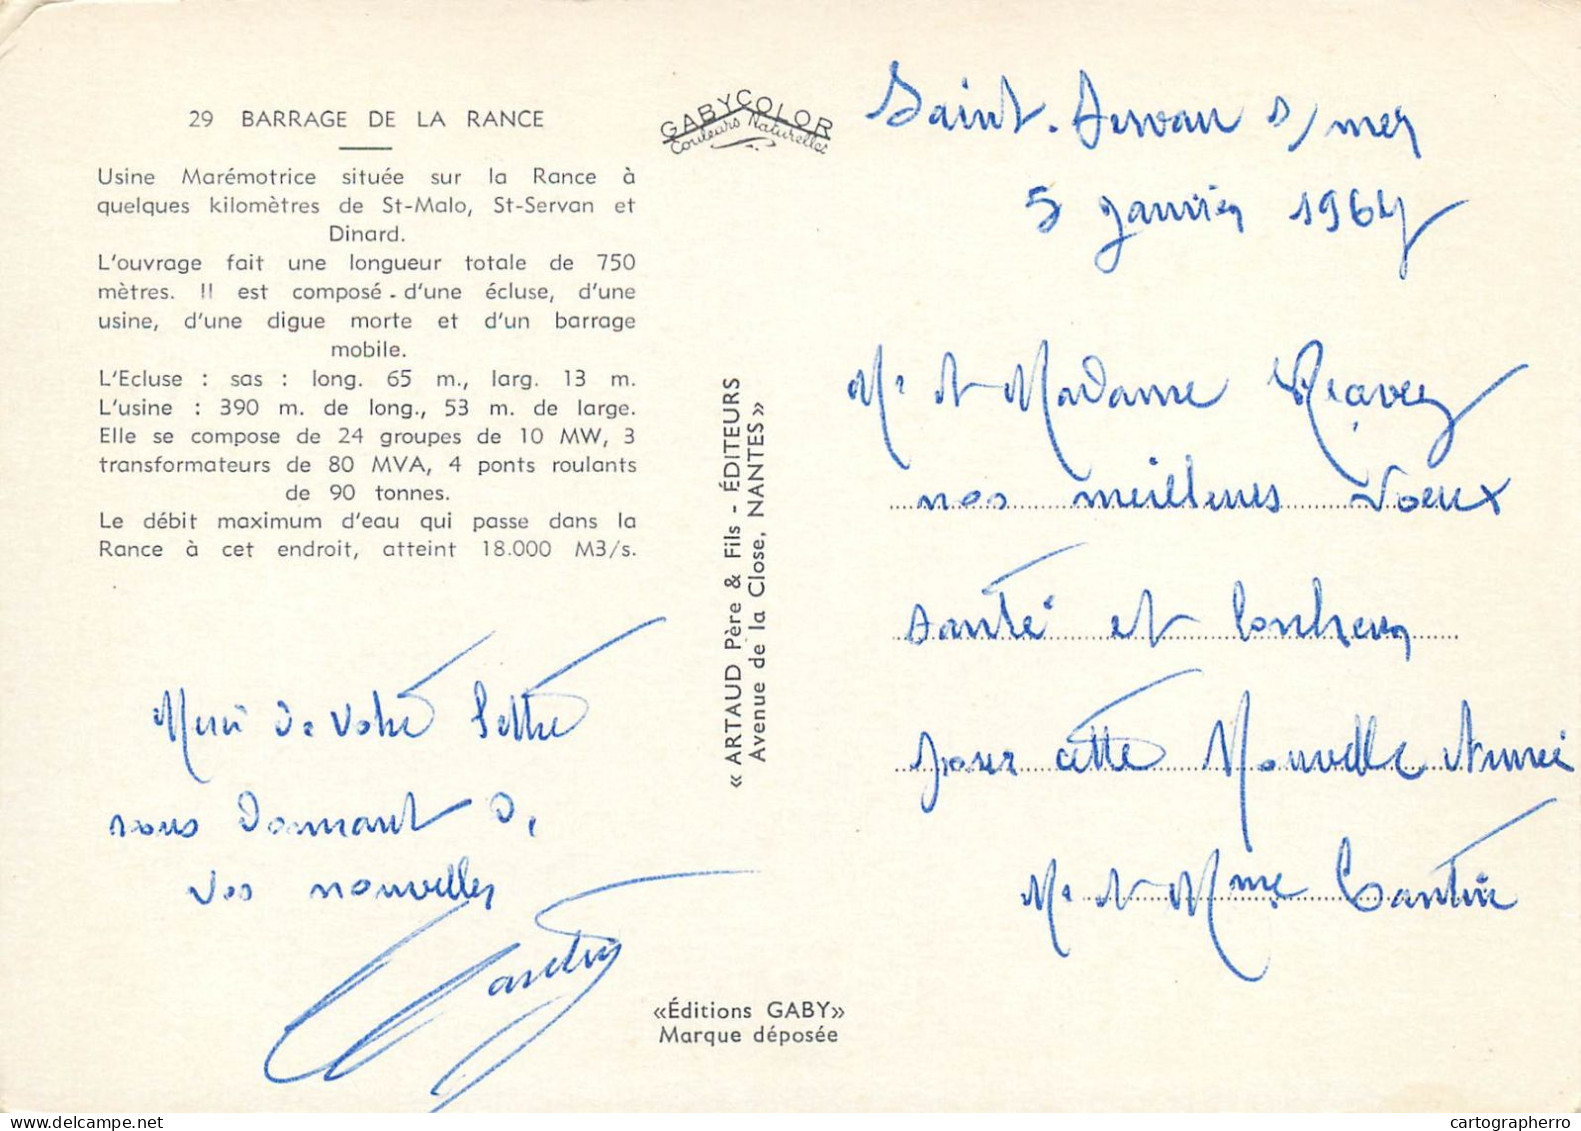 29 BARRAGE DE LA RANCE
Usine Marémotrice située sur la Rance à
quelques kilomètres de St-Malo, St-Servan et
Dinard.
L'ouvrage fait une longueur totale de 750
mètres. Il est composé d'une écluse, d'une
usine, d'une digue morte et d'un barrage
mobile.
L'Ecluse : sas : long. 65 m., larg. 13 m.
L'usine : 390 m. de long., 53 m. de large.
Elle se compose de 24 groupes de 10 MW, 3
transformateurs de 80 MVA, 4 ponts roulants
de 90 tonnes.
Le débit maximum d'eau qui passe dans la
Rance à cet endroit, atteint 18.000 M3/s.
Merci de votre lettre
nous donnant de
vos nouvelles
Cantin
GABYCOLOR
Couleurs Naturelles
« ARTAUD Père & Fils - ÉDITEURS
Avenue de la Close, NANTES »
«Éditions GABY»
Marque déposée
Saint-Servan s/mer
5 janvier 1964
Mr et Madame
nos meilleurs voeux
santé et bonheur
pour cette Nouvelle Année
Mr et Mme Cantin
cartographerro